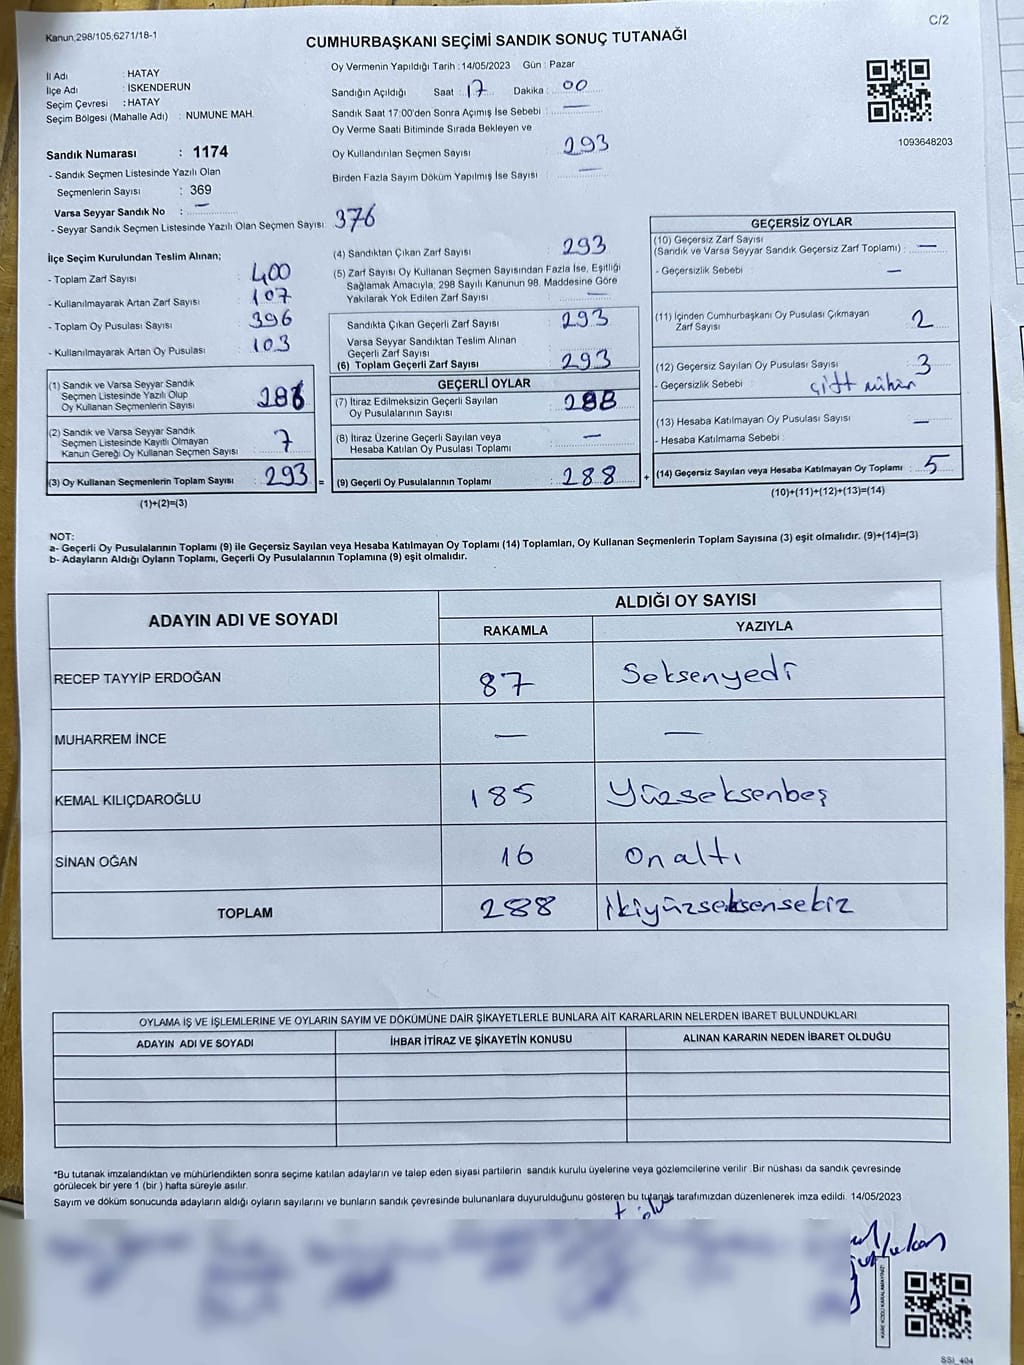 C/2
Kanun,298/105,6271/18-1
CUMHURBAŞKANI SEÇİMİ SANDIK SONUÇ TUTANAĞI
İl Adı : HATAY
İlçe Adı : İSKENDERUN
Seçim Çevresi : HATAY
Seçim Bölgesi (Mahalle Adı) : NUMUNE MAH.
Sandık Numarası : 1174
- Sandık Seçmen Listesinde Yazılı Olan
Seçmenlerin Sayısı : 369
Varsa Seyyar Sandık No : —
- Seyyar Sandık Seçmen Listesinde Yazılı Olan Seçmen Sayısı: 376
Oy Vermenin Yapıldığı Tarih : 14/05/2023 Gün : Pazar
Sandığın Açıldığı Saat : 17 Dakika : 00
Sandık Saat 17:00'den Sonra Açımış İse Sebebi : —
Oy Verme Saati Bitiminde Sırada Bekleyen ve
Oy Kullandırılan Seçmen Sayısı : 293
Birden Fazla Sayım Döküm Yapılmış İse Sayısı : —
1093648203
İlçe Seçim Kurulundan Teslim Alınan;
- Toplam Zarf Sayısı : 400
- Kullanılmayarak Artan Zarf Sayısı : 107
- Toplam Oy Pusulası Sayısı : 396
- Kullanılmayarak Artan Oy Pusulası : 103
(1) Sandık ve Varsa Seyyar Sandık
Seçmen Listesinde Yazılı Olup
Oy Kullanan Seçmenlerin Sayısı : 286
(2) Sandık ve Varsa Seyyar Sandık
Seçmen Listesinde Kayıtlı Olmayan
Kanun Gereği Oy Kullanan Seçmen Sayısı : 7
(3) Oy Kullanan Seçmenlerin Toplam Sayısı : 293
(1)+(2)=(3)
=
(4) Sandıktan Çıkan Zarf Sayısı : 293
(5) Zarf Sayısı Oy Kullanan Seçmen Sayısından Fazla İse, Eşitliği
Sağlamak Amacıyla, 298 Sayılı Kanunun 98. Maddesine Göre
Yakılarak Yok Edilen Zarf Sayısı : —
Sandıkta Çıkan Geçerli Zarf Sayısı : 293
Varsa Seyyar Sandıktan Teslim Alınan
Geçerli Zarf Sayısı
(6) Toplam Geçerli Zarf Sayısı : 293
GEÇERLİ OYLAR
(7) İtiraz Edilmeksizin Geçerli Sayılan
Oy Pusulalarının Sayısı : 288
(8) İtiraz Üzerine Geçerli Sayılan veya
Hesaba Katılan Oy Pusulası Toplamı : —
(9) Geçerli Oy Pusulalarının Toplamı : 288
+
GEÇERSİZ OYLAR
(10) Geçersiz Zarf Sayısı
(Sandık ve Varsa Seyyar Sandık Geçersiz Zarf Toplamı) : —
- Geçersizlik Sebebi : —
(11) İçinden Cumhurbaşkanı Oy Pusulası Çıkmayan
Zarf Sayısı : 2
(12) Geçersiz Sayılan Oy Pusulası Sayısı : 3
- Geçersizlik Sebebi : çift mühür
(13) Hesaba Katılmayan Oy Pusulası Sayısı : —
- Hesaba Katılmama Sebebi :
(14) Geçersiz Sayılan veya Hesaba Katılmayan Oy Toplamı : 5
(10)+(11)+(12)+(13)=(14)
NOT:
a- Geçerli Oy Pusulalarının Toplamı (9) ile Geçersiz Sayılan veya Hesaba Katılmayan Oy Toplamı (14) Toplamları, Oy Kullanan Seçmenlerin Toplam Sayısına (3) eşit olmalıdır. (9)+(14)=(3)
b- Adayların Aldığı Oyların Toplamı, Geçerli Oy Pusulalarının Toplamına (9) eşit olmalıdır.
ADAYIN ADI VE SOYADI ALDIĞI OY SAYISI
RAKAMLA YAZIYLA
RECEP TAYYİP ERDOĞAN 87 Seksenyedi
MUHARREM İNCE — —
KEMAL KILIÇDAROĞLU 185 Yüzseksenbeş
SİNAN OĞAN 16 Onaltı
TOPLAM 288 İkiyüzseksensekiz
OYLAMA İŞ VE İŞLEMLERİNE VE OYLARIN SAYIM VE DÖKÜMÜNE DAİR ŞİKAYETLERLE BUNLARA AİT KARARLARIN NELERDEN İBARET BULUNDUKLARI
ADAYIN ADI VE SOYADI İHBAR İTİRAZ VE ŞİKAYETİN KONUSU ALINAN KARARIN NEDEN İBARET OLDUĞU
*Bu tutanak imzalandıktan ve mühürlendikten sonra seçime katılan adayların ve talep eden siyasi partilerin sandık kurulu üyelerine veya gözlemcilerine verilir .Bir nüshası da sandık çevresinde
görülecek bir yere 1 (bir ) hafta süreyle asılır.
Sayım ve döküm sonucunda adayların aldığı oyların sayılarını ve bunların sandık çevresinde bulunanlara duyurulduğunu gösteren bu tutanak tarafımızdan düzenlenerek imza edildi. 14/05/2023
SSİ_404